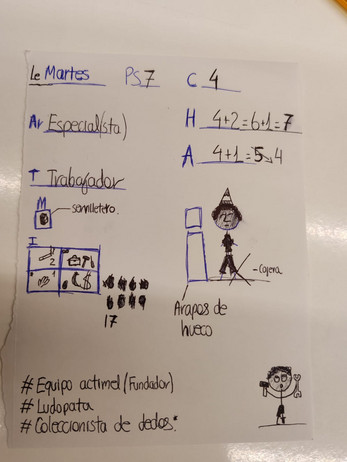 Le Martes PS 7 C 4
Ar Especial(ista) H 4+2=6+1=7
A 4+1=5 4
T Trabajador
M
semilletero.
I
2
$
17
cojera
Arapos de
hueco
# Equipo actimel (Fundador)
# Ludopata
# Coleccionista de dedos.*